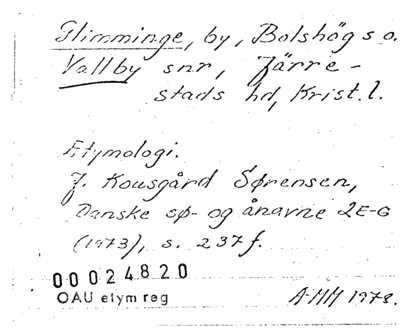 Glimminge, by, Bolshög s o.
Vallby snr, Järre-
stads hd, Krist. l.
Etymologi.
J. Kousgård Sørensen,
Danske sø- og ånavne 2E-G
(1973), s. 237 f.
00024820
OAU etym reg
A-MH 1978.